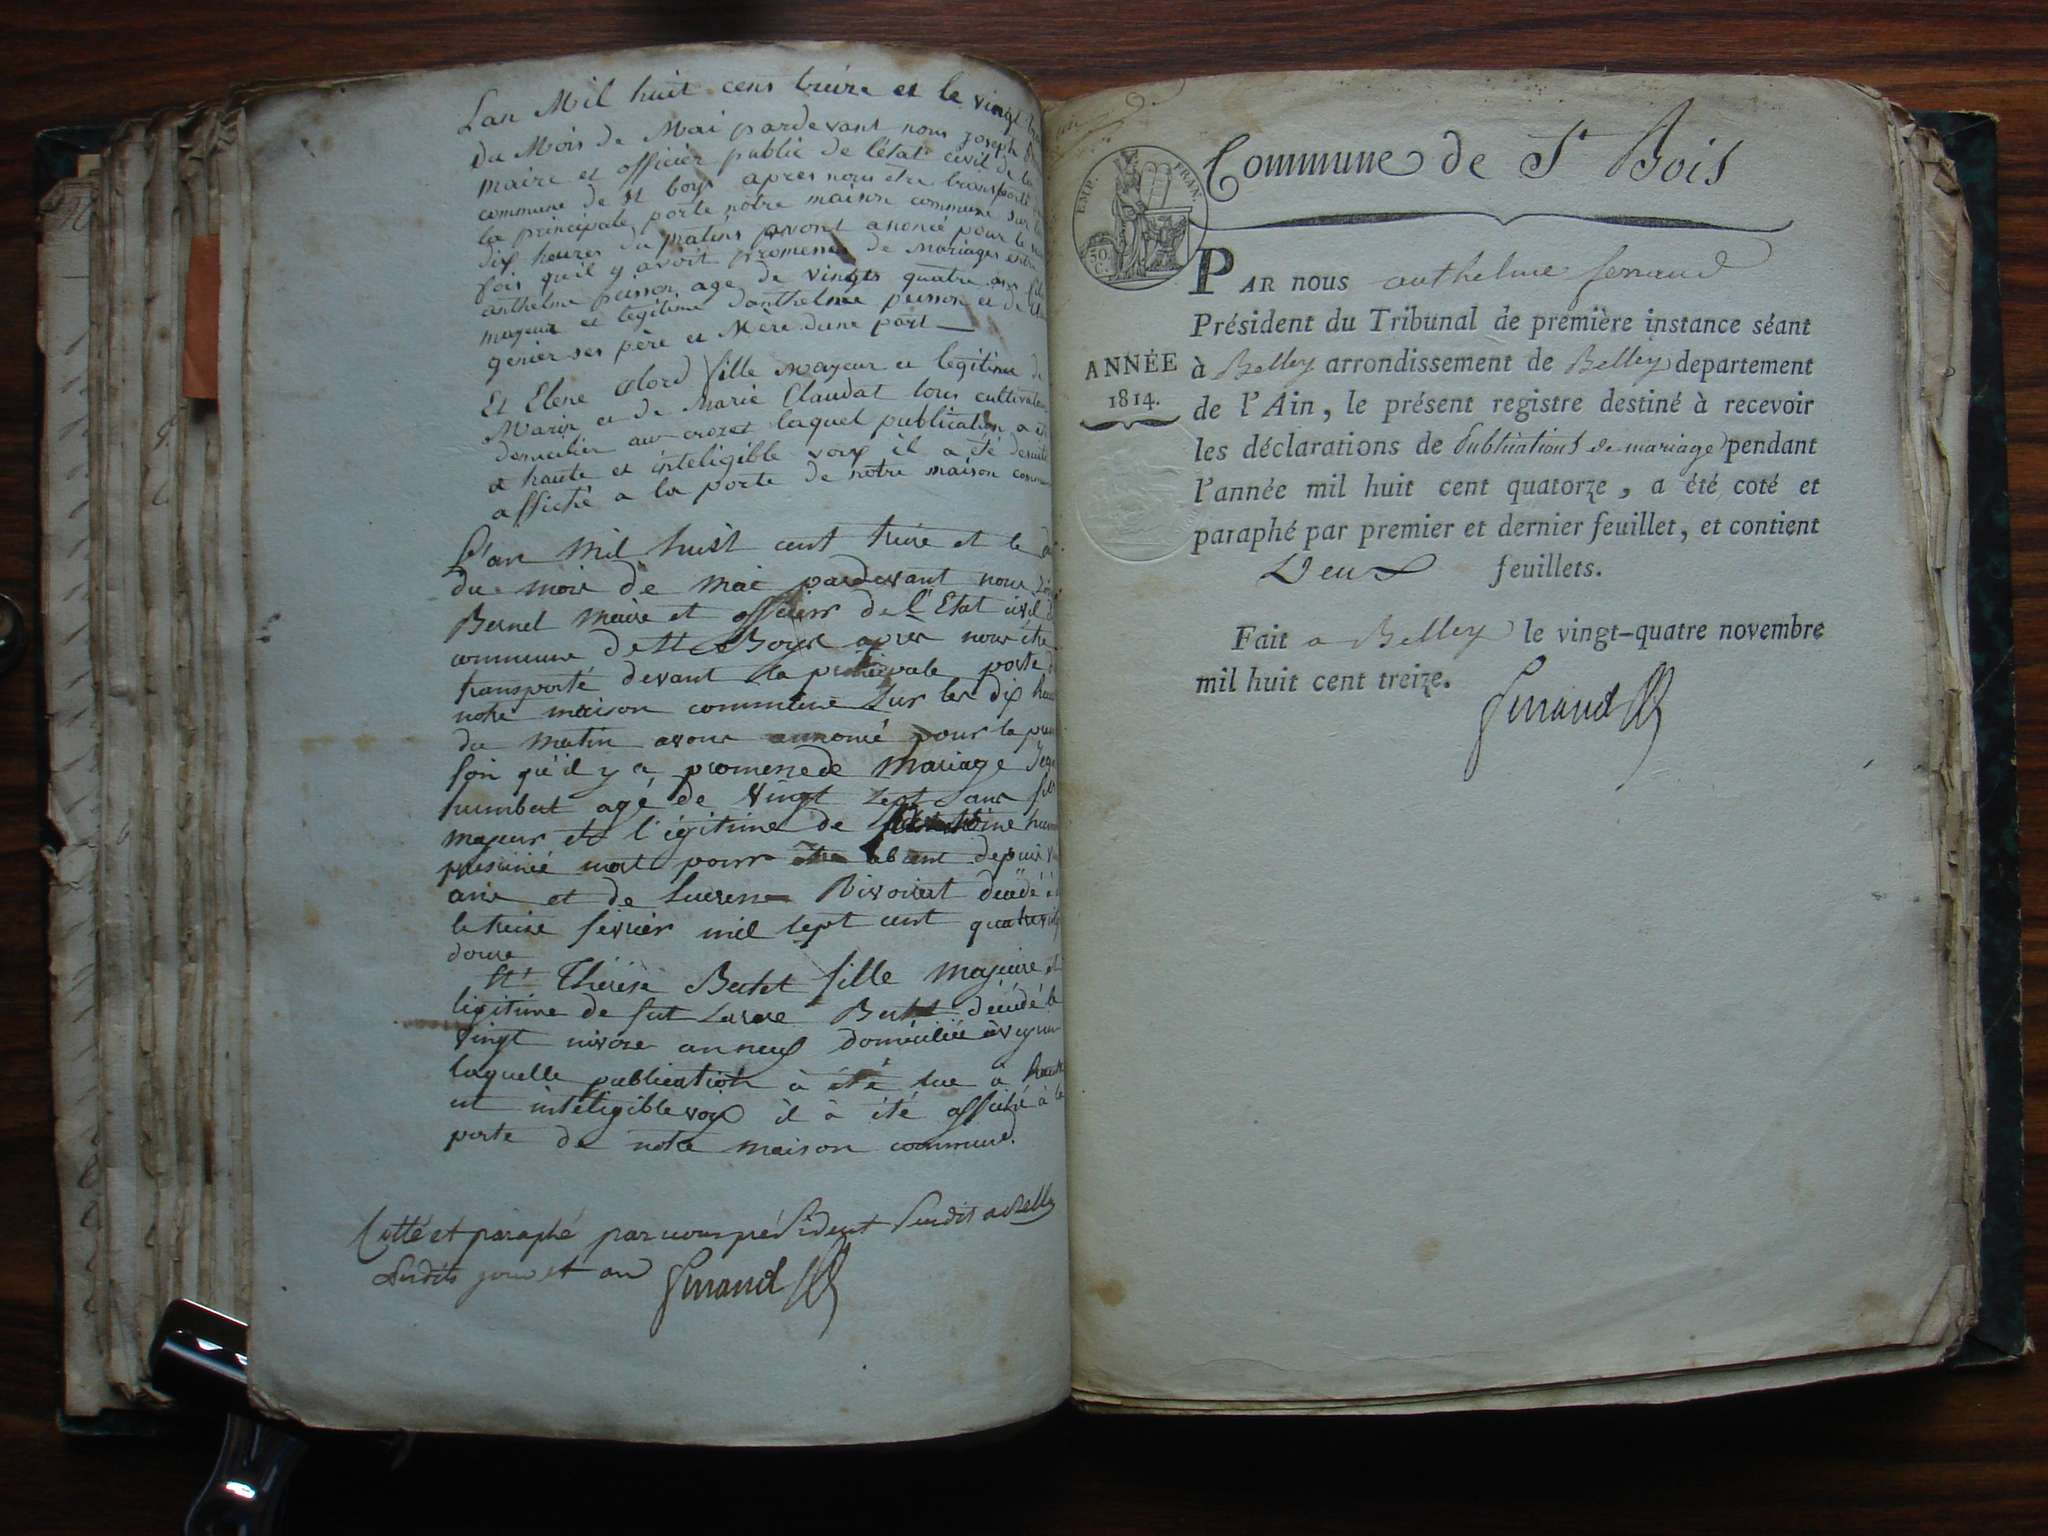 Lan Mil huit cens treize et le vingt
du Mois de Mai pardevant nous joseph
maire et officier public de l'état civil de la
commune de st boys apres nous etre transporté
la principale porte notre maison commune sur le
dix heures du matins avont anoncé pour la
fois quil y avoit promesse de mariages entre
anthelme pusson age de vingts quatre ans fils
mageur et legitime danthelme pusson et de
genier ses père et Mère dune part
Et Elene fille mageur et legitime de
Marin et de Marie Claudat tous cultivateur
Domicilier au crozet laquel publication a été
a haute et inteligible voix il a été desuite
affiché a la porte de notre maison commune
L'an Mil huit cent treize et le
du mois de mai pardevant nous
Bernel Maire et officier de l'Etat civil
commune de St Boys après nous être
transporté devant la principale porte
notre maison commune sur les dix heures
du matin avons annoncé pour la
fois qu'il y a promesse de mariage
humbert agé de vingt sept ans fils
majeur et légitime de
présumé mort pour être absent depuis
ans et de Rivoirat décédé
le treize février mil sept cent quatre vingt
douze
Et Thérèse Bertet fille majeure et
légitime de fut Bertet décédé le
vingt nivose an neuf domiciliée
laquelle publication à été lue à haute
et inteligible voix il à été affiché à la
porte de notre maison commune.
Cotté et paraphé par nous président susdit a Belley
susdits jour et an Ferrand
Commune de St Bois
EMP. FRAN.
50 C.
PAR nous anthelme ferrand
Président du Tribunal de première instance séant
ANNÉE
1814.
à Belley arrondissement de Belley departement
de l'Ain, le présent registre destiné à recevoir
les déclarations de Publications de mariage pendant
l'année mil huit cent quatorze, a été coté et
paraphé par premier et dernier feuillet, et contient
Deux feuillets.
Fait a Belley le vingt-quatre novembre
mil huit cent treize.
Ferrand